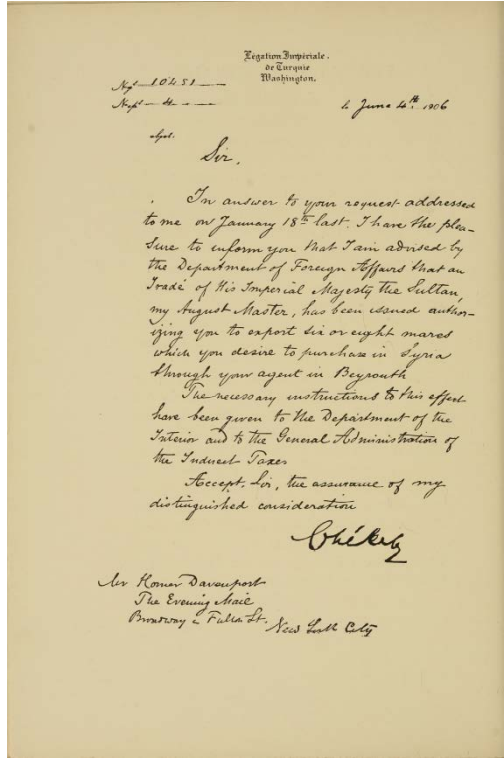 Légation Impériale.
de Turquie
Washington.
10451
4
le June 4th 1906
Sir.
In answer to your request addressed
to me on January 18th last. I have the plea-
sure to inform you that I am advised by
the Department of Foreign Affairs that an
Iradé of His Imperial Majesty the Sultan,
my August Master, has been issued author-
izing you to export six or eight mares
which you desire to purchase in Syria
through your agent in Beyrouth
The necessary instructions to this effect
have been given to the Department of the
Interior and to the General Administration of
the Indirect Taxes
Accept, Sir, the assurance of my
distinguished consideration
Chékib
Mr Homer Davenport
The Evening Mail
Broadway & Fulton St.
New York City